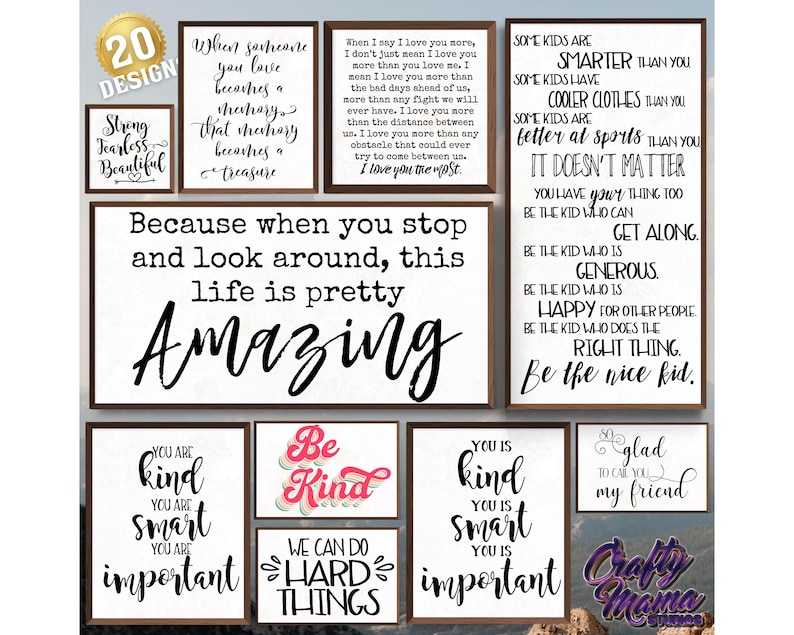 20
DESIGNS
Strong
Fearless
Beautiful
When someone
you love
becomes a
memory,
that memory
becomes a
treasure
When I say I love you more,
I don't just mean I love you
more than you love me. I
mean I love you more than
the bad days ahead of us,
more than any fight we will
ever have. I love you more
than the distance between
us. I love you more than any
obstacle that could ever
try to come between us.
I love you the most.
SOME KIDS ARE
SMARTER THAN YOU.
SOME KIDS HAVE
COOLER CLOTHES THAN YOU.
SOME KIDS ARE
better at sports THAN YOU
IT DOESN'T MATTER
YOU HAVE your THING TOO
BE THE KID WHO CAN
GET ALONG.
BE THE KID WHO IS
GENEROUS.
BE THE KID WHO IS
HAPPY FOR OTHER PEOPLE.
BE THE KID WHO DOES THE
RIGHT THING.
Be the nice kid.
Because when you stop
and look around, this
life is pretty
Amazing
YOU ARE
kind
YOU ARE
smart
YOU ARE
important
Be
Kind
WE CAN DO
HARD
THINGS
YOU IS
kind
YOU IS
smart
YOU IS
important
SO
glad
TO CALL YOU
my friend
Crafty
Mama
STUDIOS